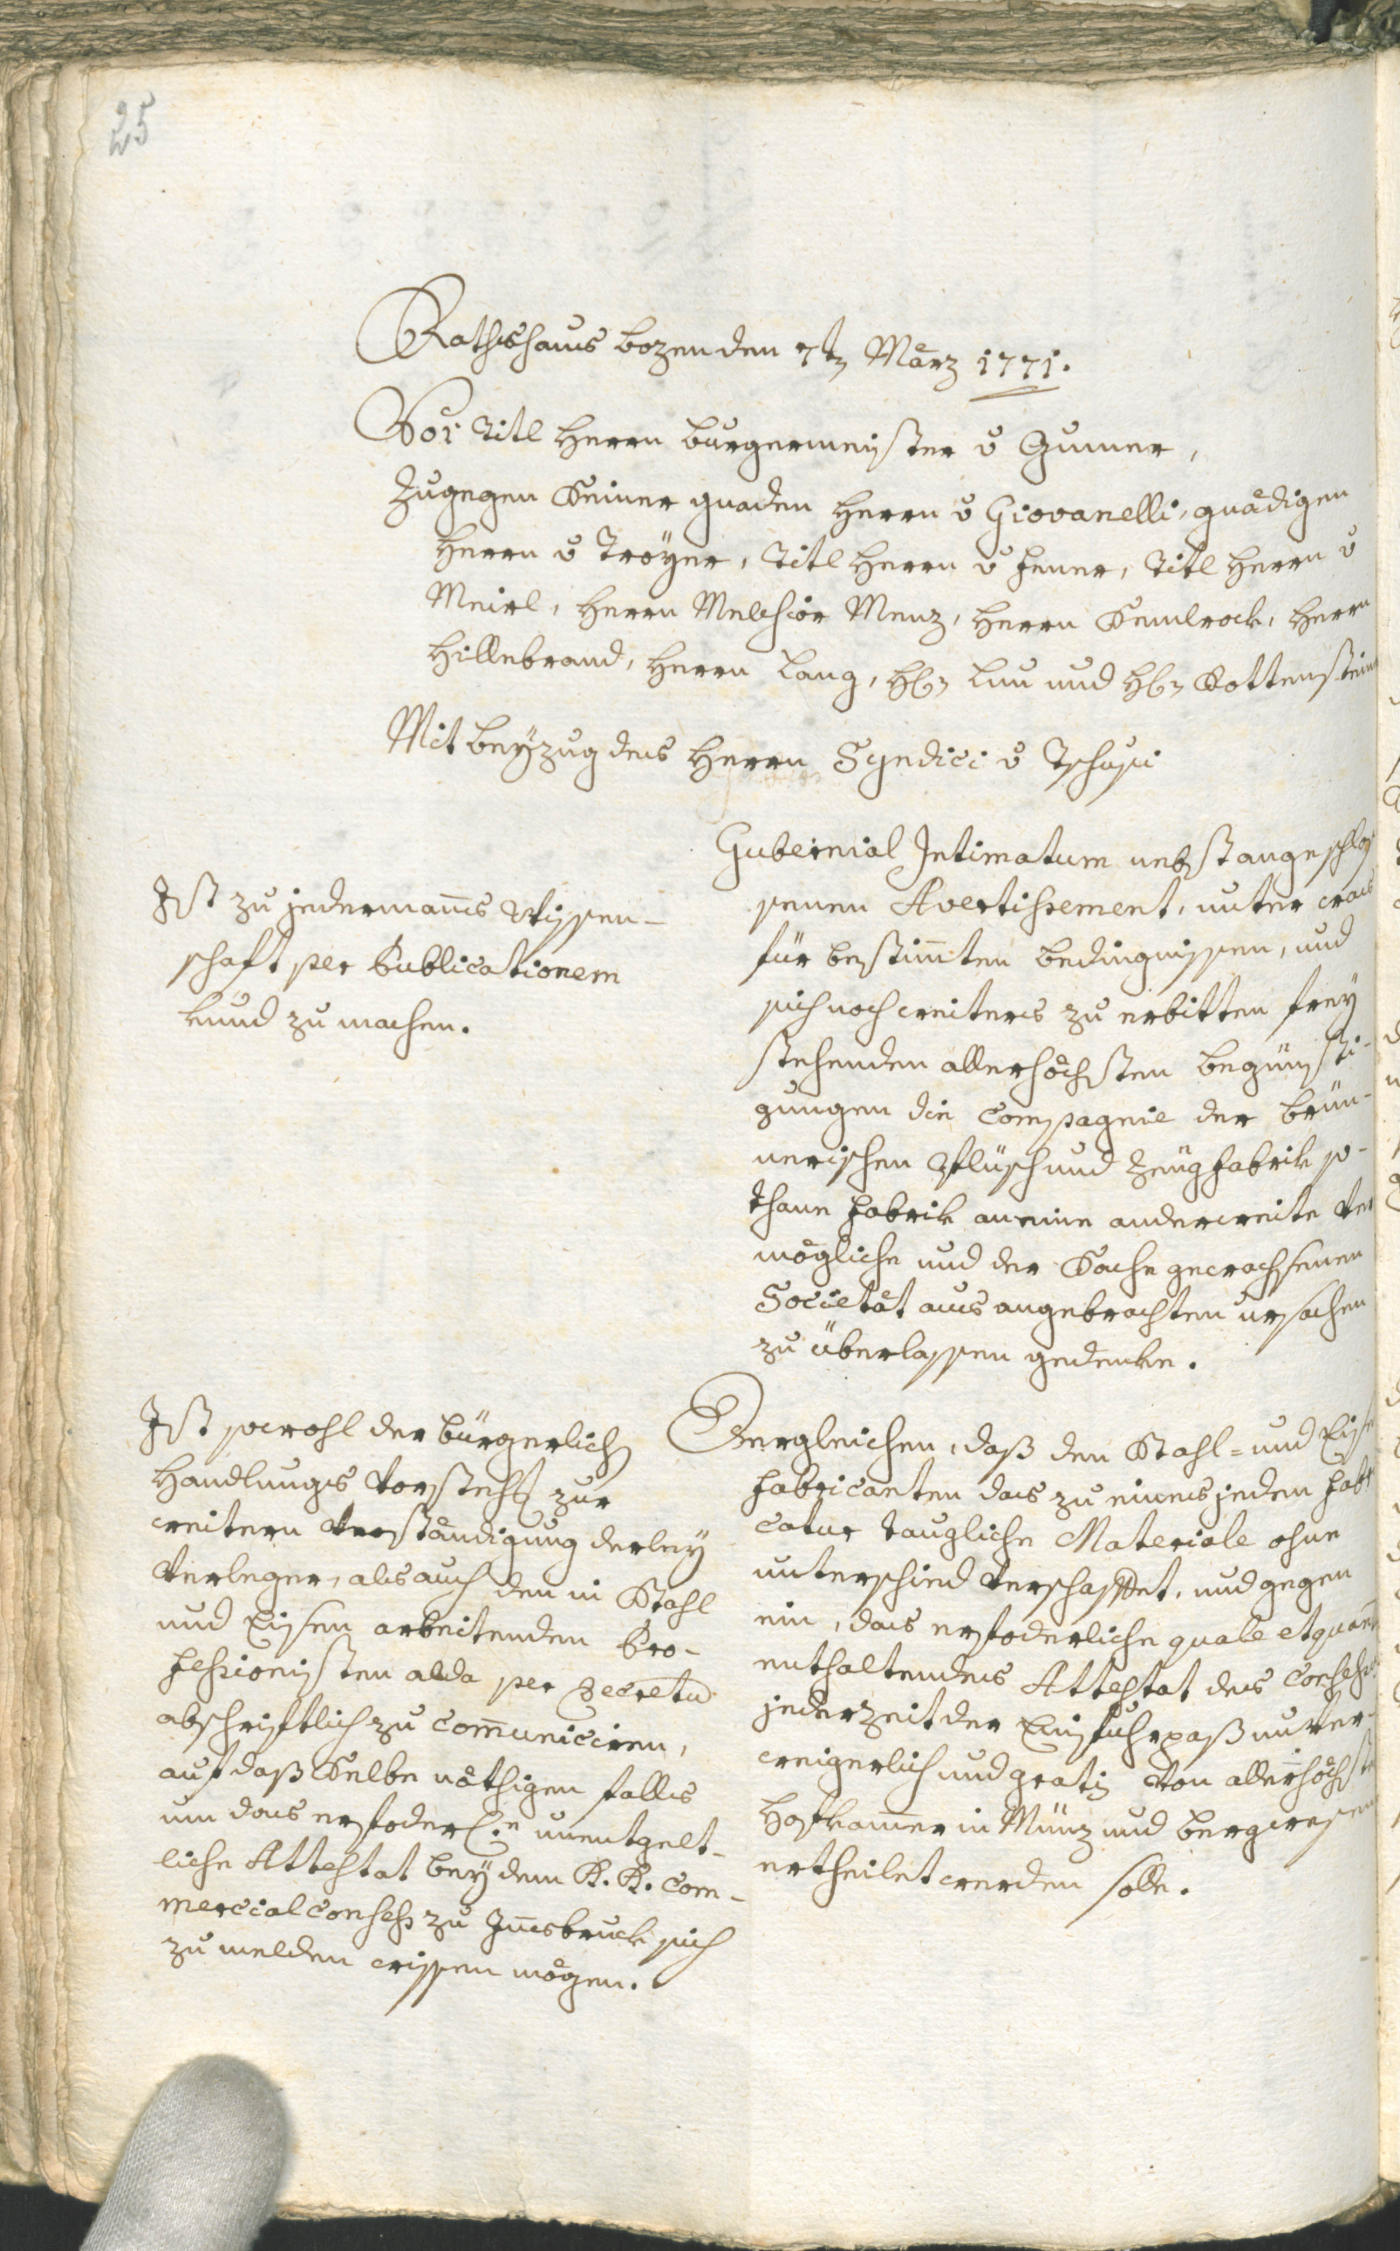 25
Rathshaus bozen den 7t. März 1771.
Vor Titl Herrn burgermeister v Gumer,
Zugegen Seiner gnaden Herrn v Giovanelli, gnädigen
Herrn v Troÿer, Titl Herrn v Hener, Titl Herrn v
Meirl, Herrn Melchior Menz, Herrn Semlrock, Herrn
Hillebrand, Herrn Lang, H: Lun und H: Rottenstein
Mit beÿzug des Herrn Syndici v Tschusi
Ist zu jedermanns Wissen-
schaft per Publicationem
kund zu machen.
Gubernial Intimatum nebst angeschlos
senen Avertissement, unter was
für bestim̄ten bedingnissen, und
sich noch weiters zu erbitten freÿ
stehenden allerhöchsten begünsti-
gungen die Compagnie der brün-
nerischen Plüsch und Zeugfabrik so-
thane Fabrik an eine anderweite Ver
mögliche und der Sache gewachsenen
Societät aus angebrachten ursachen
zu überlassen gedenke.
Ist sowohl der bürgerlich
Handlungs Vorstehß zur
weitern Verständigung derleÿ
Verleger, als auch den in Stahl
und Eisen arbeitenden Pro-
fessionisten alda per Decretu
abschriftlich zu com̄uniciren,
auf daß Selbe nöthigen falls
um das erforderl:e unentgelt-
liche Attestat beÿ dem K. K. Com-
mercial Consess zu Jnnsbruck sich
zu melden wissen mögen.
Dergleichen, daß den Stahl- und Eise
fabricanten das zu eines jeden Fabr
catur taugliche Materiale ohne
unterschied verschaffet, und gegen
ein, das erforderliche quale et quan
enthaltendes Attestat des Consess
jederzeit der Einfuhrpaß unver-
weigerlich und gratis von allerhöchst
Hofkam̄er in Münz und bergwesen
ertheilet werden solle.